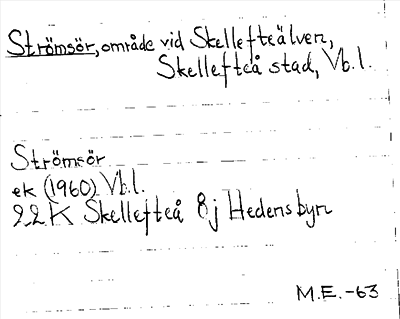 Strömsör, område vid Skellefteälven,
Skellefteå stad, Vb.l.
Strömsör
ek (1960) Vb.l.
22K Skellefteå 8j Hedensbyn
M.E. -63